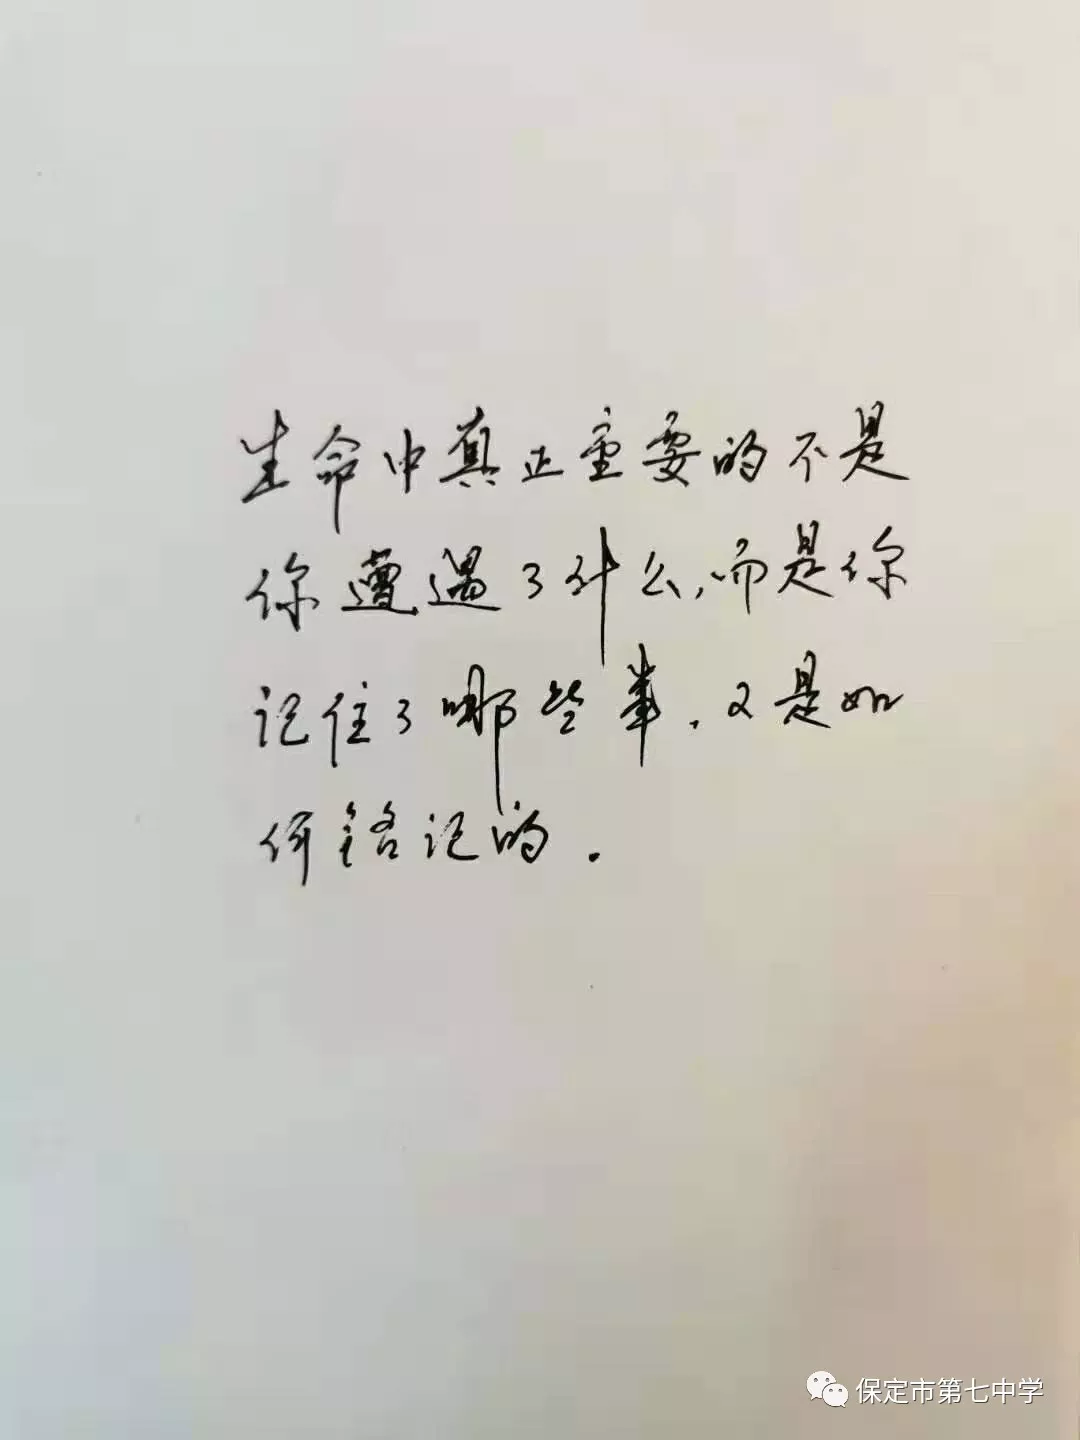 生命中真正重要的不是
你遭遇了什么,而是你
记住了哪些事,又是如
何铭记的.
保定市第七中学